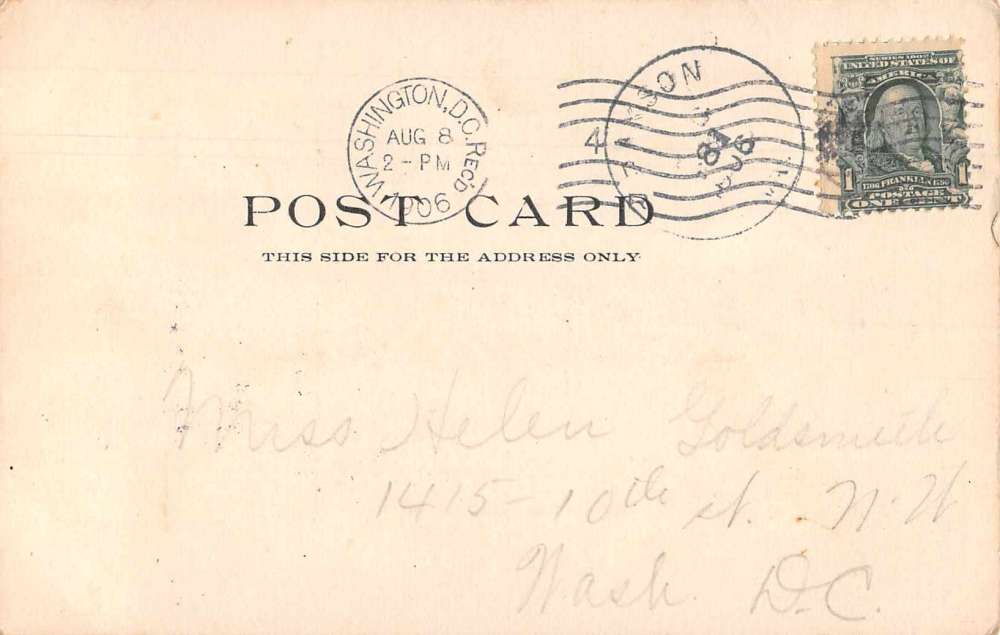 WASHINGTON, D.C. REC'D
AUG 8
2 - PM
1906
4
SERIES 1902
UNITED STATES OF
AMERICA
1 FRANKLIN 1
POSTAGE
ONE CENT
POST CARD
THIS SIDE FOR THE ADDRESS ONLY.
Miss Helen Goldsmith
1415-10th st. N.W
Wash. D.C.